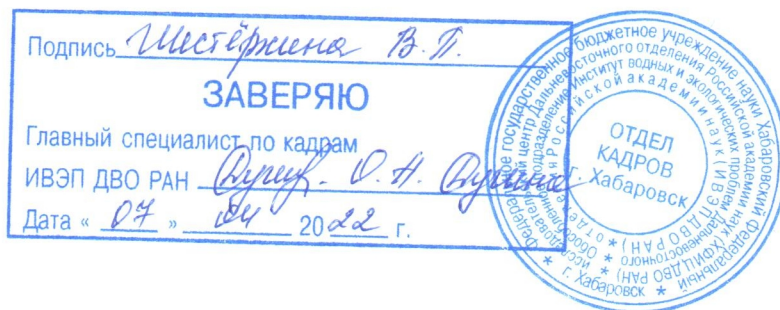 Подпись Шестёркина В. П.
ЗАВЕРЯЮ
Главный специалист по кадрам
ИВЭП ДВО РАН О. А.
Дата « 07 » 04 2022 г.
Федеральное государственное бюджетное учреждение науки Хабаровский Федеральный
исследовательский центр Дальневосточного отделения Российской академии наук (ХФИЦ ДВО РАН)
Обособленное подразделение Институт водных и экологических проблем Дальневосточного
отделения Российской академии наук (ИВЭП ДВО РАН)
ОТДЕЛ
КАДРОВ
г. Хабаровск
* г. Хабаровск *